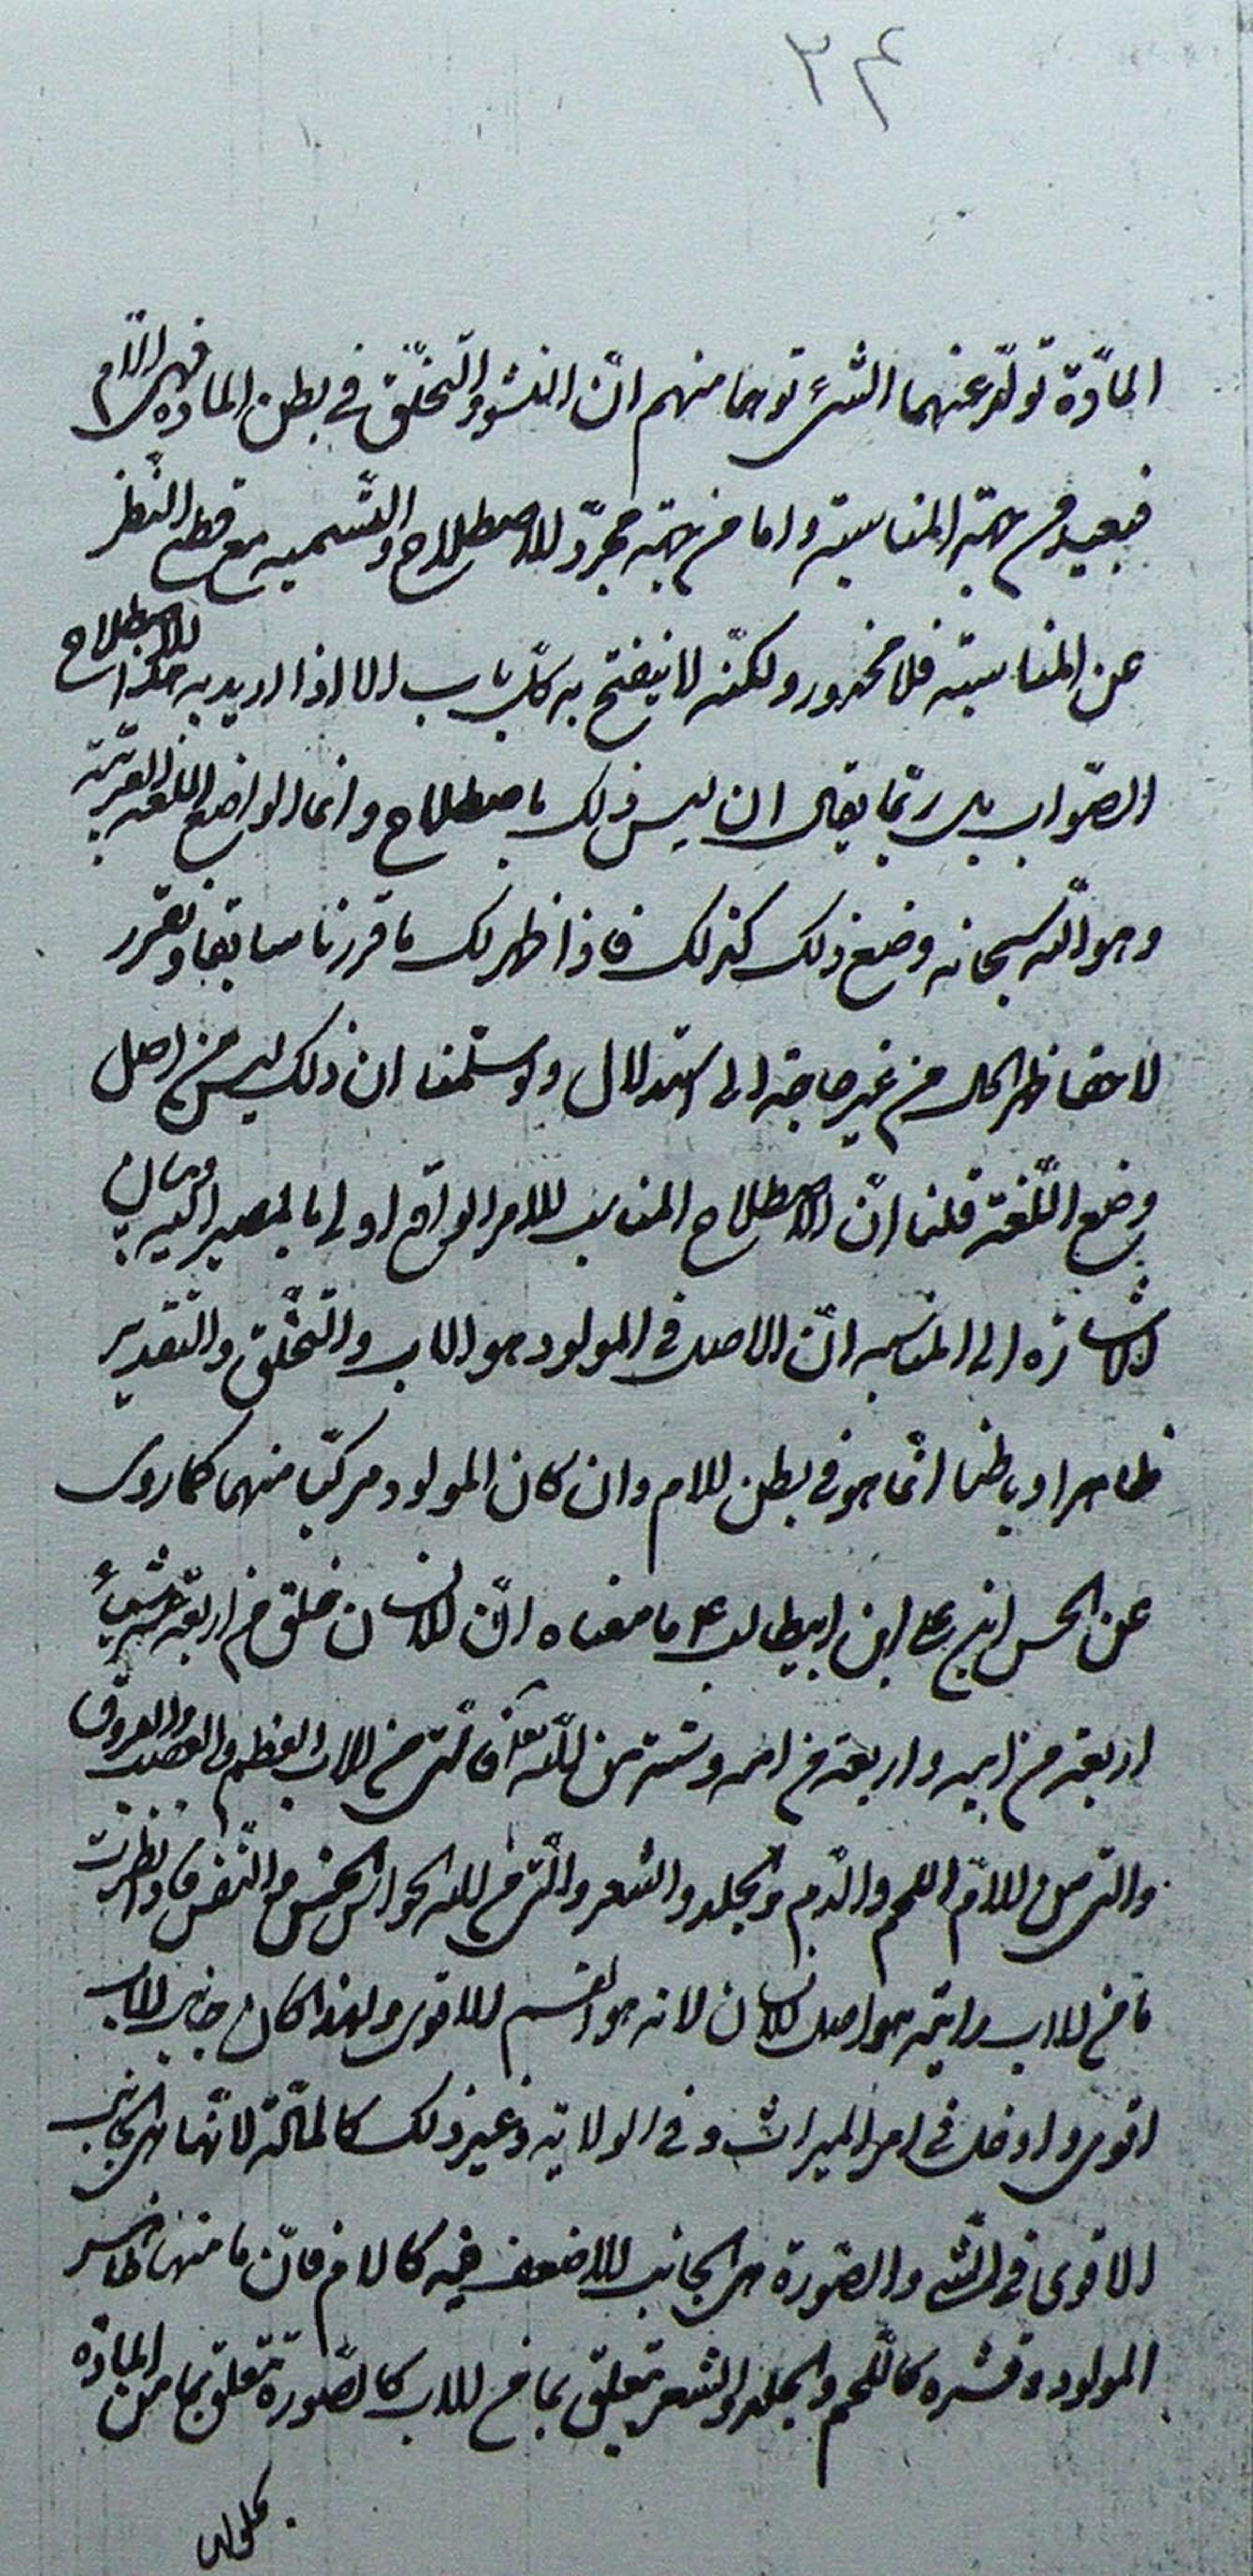 ٣٤
المادّة تولّد عنهما الشئ توهما منهم انّ النشو والتخلّق في بطن المادة فهى الامّ
فبعيد من جهة المناسبة واما من جهة مجرّد الاصطلاح والتّسميه مع قطع النّظر
عن المناسبة فلا محذور ولكنّه لا ينفتح به كلّ باب الا اذا اريد به هذا الاصطلاح
الصّواب بل ربّما يقال ان ليس ذلك باصطلاح وانما الواضع اللغه العربيّة
وهو اللّه سبحانه وضع ذلك كذلك فاذا ظهر لك ما قررنا سابقا ونقرر
لاحقا ظهر الحال من غير حاجة الى استدلال ولو سلّمنا ان ذلك ليس من اصل
وضع اللّغة قلنا انّ الاصطلاح المناسب للامر الواقع اولى بالمصير اليه وبيان
الاشارة الى المناسبه انّ الاصل فى المولود هو الاب والتخلّق والتقدير
ظاهرا وباطنا انّما هو فى بطن الام وان كان المولود مركبّا منهما كما روى
عن الحسن ابن على ابن ابيطالب ع ما معناه انّ الانسان خلق من اربعة عشر شيئاً
اربعة من ابيه واربعة من امه وستة من اللّه تعالى فالّتى من الاب العظم والعصب والعروق
والتى من الامّ اللحم والدّم والجلد والشعر والّتى من اللّه الحواس الخمس والنّفس فاذا نظرت
ما من الاب رايته هو اصل الانسان لانه هو القسم الاقوى ولهذا كان جانب الاب
اقوى وادخل فى امر الميراث وفى الولاية وغير ذلك كالمادّة لانّها هى الجانب
الاقوى فى الشّئ والصّورة هى الجانب الاضعف فيه كالام فانّ ما منها ظاهر
المولود وقشره كاللّحم والجلد والشعر متعلّق بما من الاب كالصّورة تتعلق بما من المادّة